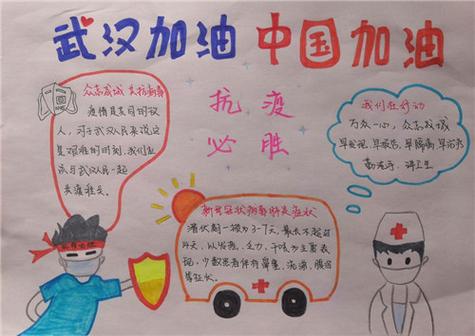 武汉加油 中国加油
众志成城 共抗病毒
疫情是共同的敌
人，对于武汉人民来说这
是艰难的时刻，我们应
该与武汉人民一起
共渡难关。
抗疫
必胜
我们在行动
万众一心，众志成城
早发现，早报告，早隔离，早治疗
勤洗手，讲卫生
新型冠状病毒肺炎症状
潜伏期一般为3-7天，最长不超过
14天，以发烧，乏力，干咳为主要表
现，少数患者伴有鼻塞，流涕，腹泻
等症状。